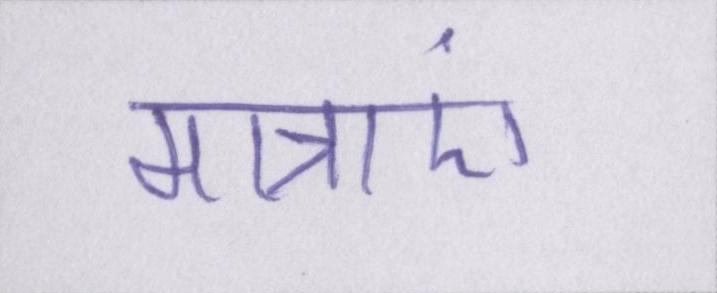 मात्राएं